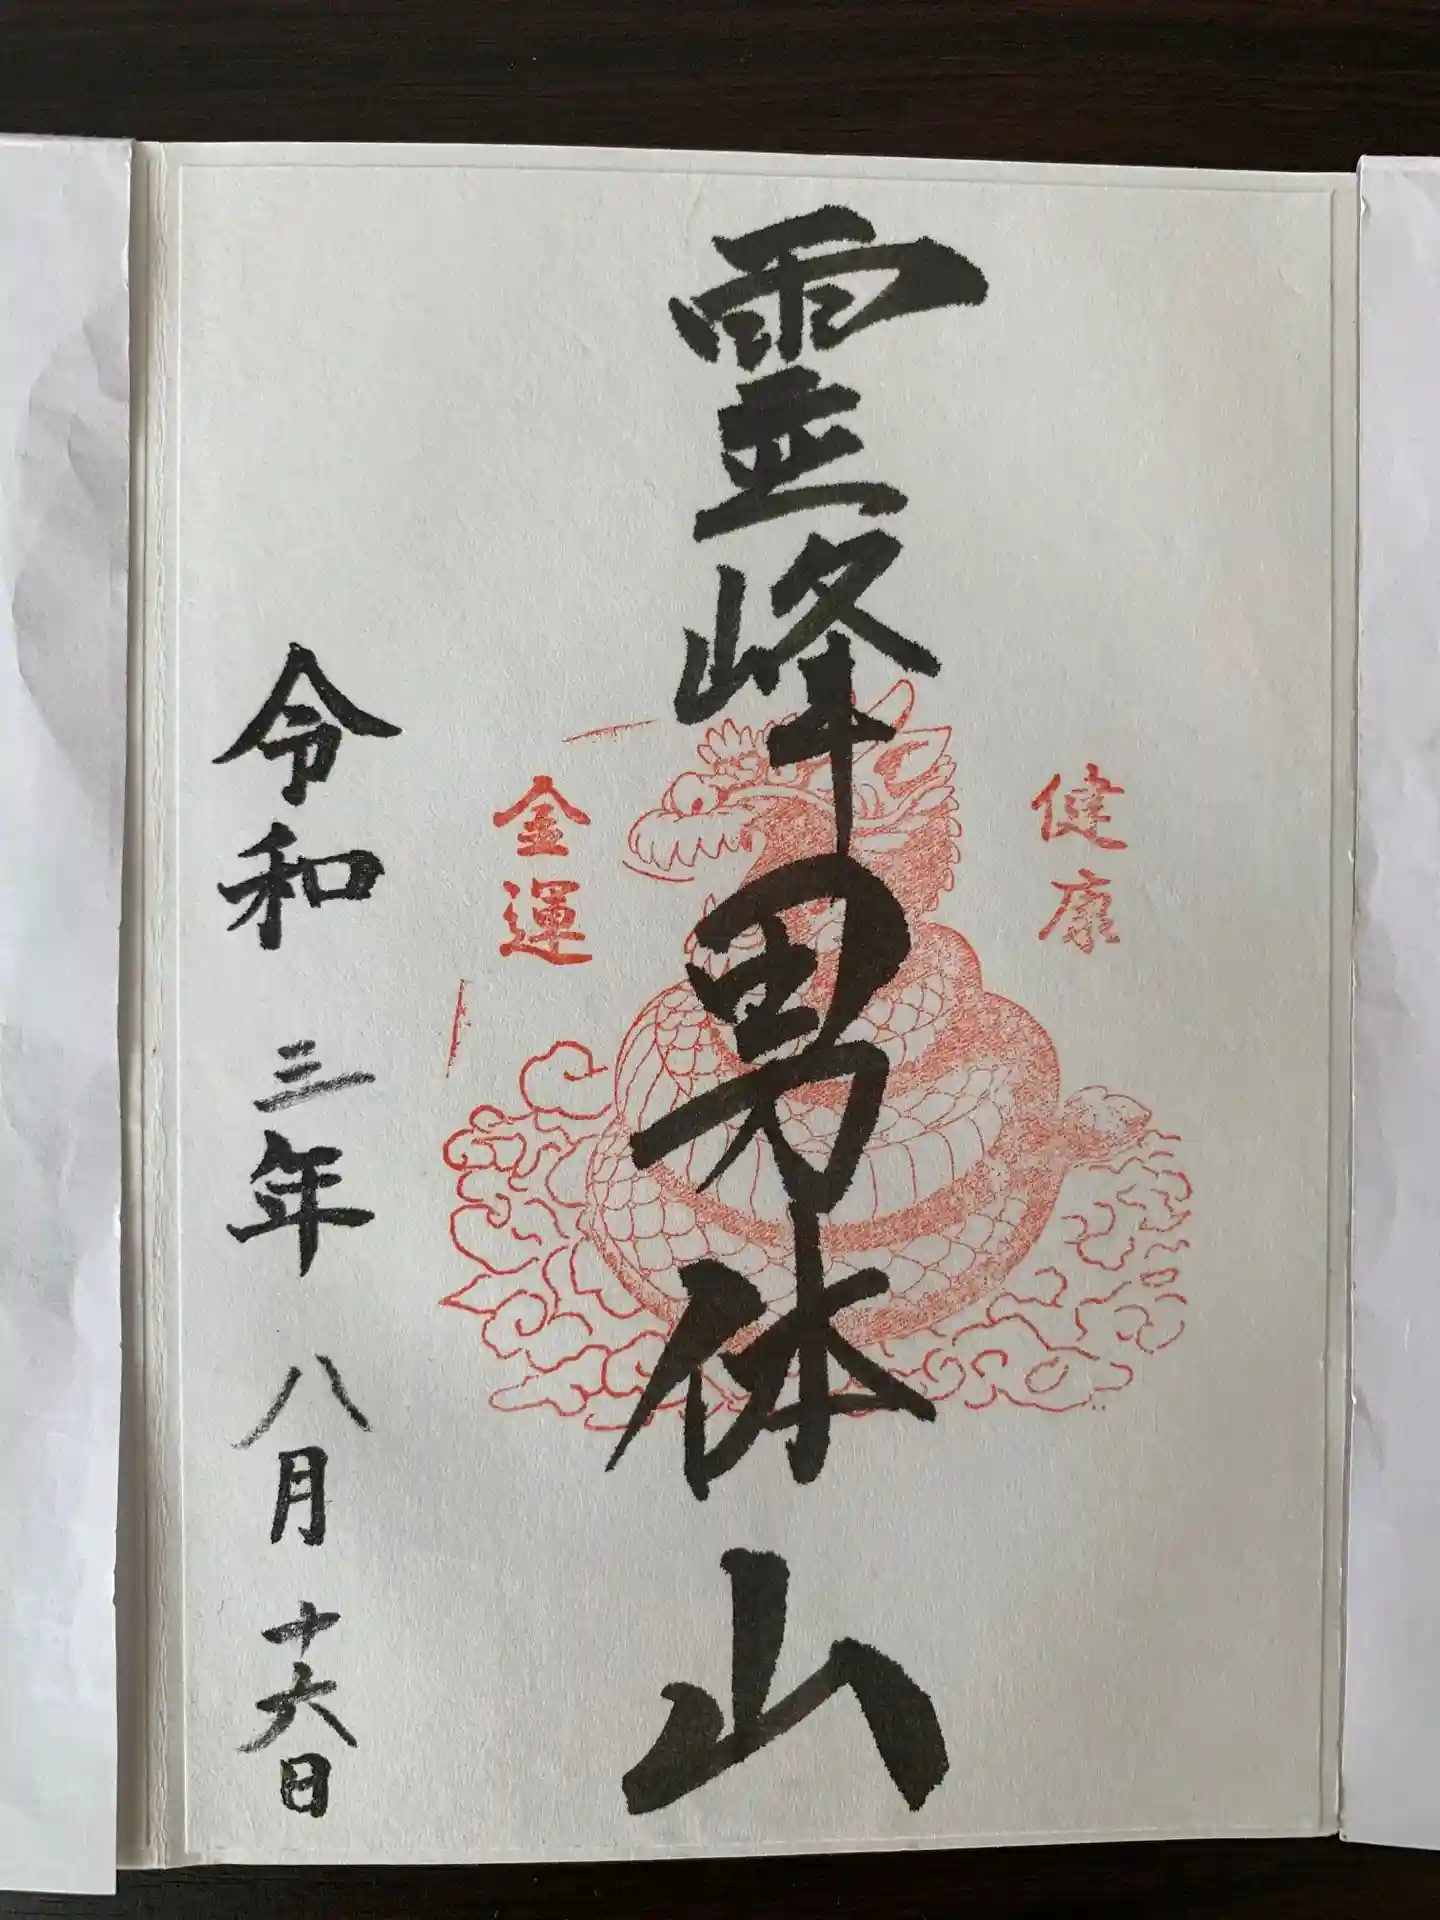 健康
霊峰男体山
金運
令和三年八月十六日